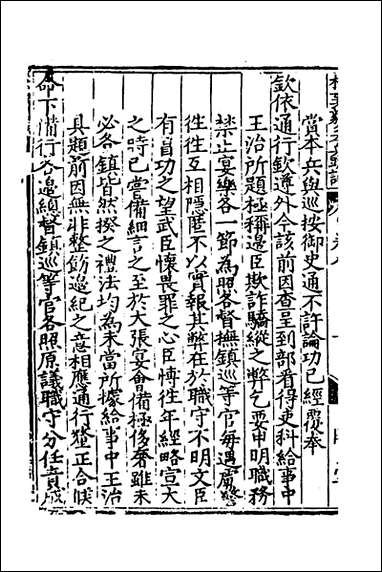 賞本兵與巡按御史通不許論功已經覆奉
欽依通行欽遵外今該前因查呈到部看得吏科給事中
王治所題極稱邊臣欺詐驕縱之弊乞要申明職務
禁止宴樂各一節為照各督撫鎮巡等官每遇虜警
徃徃互相隱匿不以實報其弊在於職守不明文臣
有冒功之望武臣懷畏罪之心臣博徃年經略宣大
之時已嘗備細言之至於大張宴會備極侈奢雖未
必各鎮皆然揆之禮法均為未當所據給事中王治
具題前因無非整飭邊紀之意相應通行釐正合候
命下備行各邊總督鎮巡等官各照原議職守分任責成